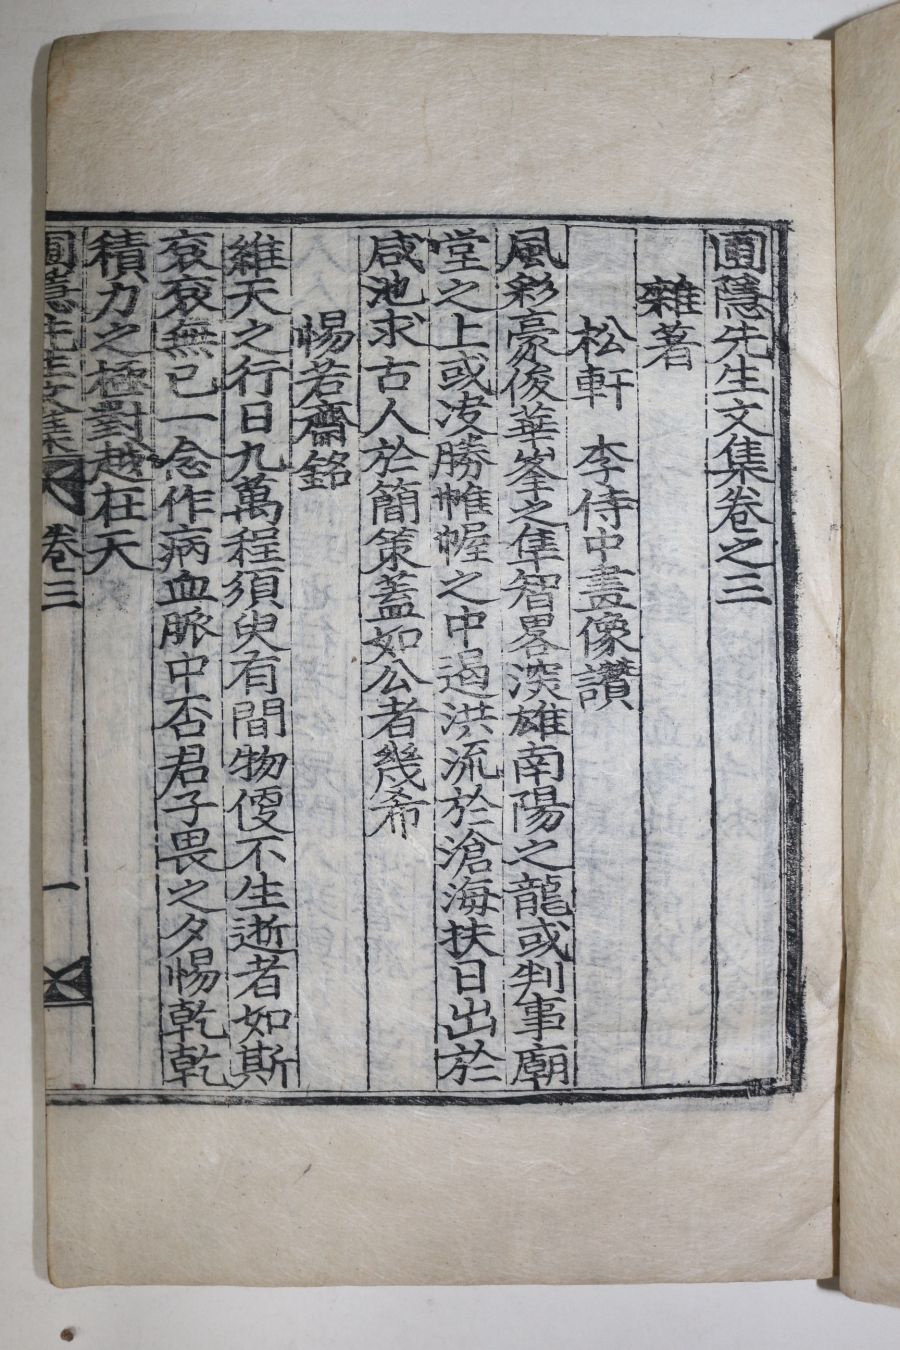 圃隱先生文集卷之三
雜著
松軒 李侍中畫像讃
風彩豪俊華峯之隼智畧深雄南陽之龍或判事廟
堂之上或决勝帷幄之中遏洪流於滄海扶日出於
咸池求古人於簡策蓋如公者幾希
惕若齋銘
維天之行日九萬程須臾有間物便不生逝者如斯
袞袞無已一念作病血脈中否君子畏之夕惕乾乾
積力之極對越在天
圃隱先生文集 卷三 一